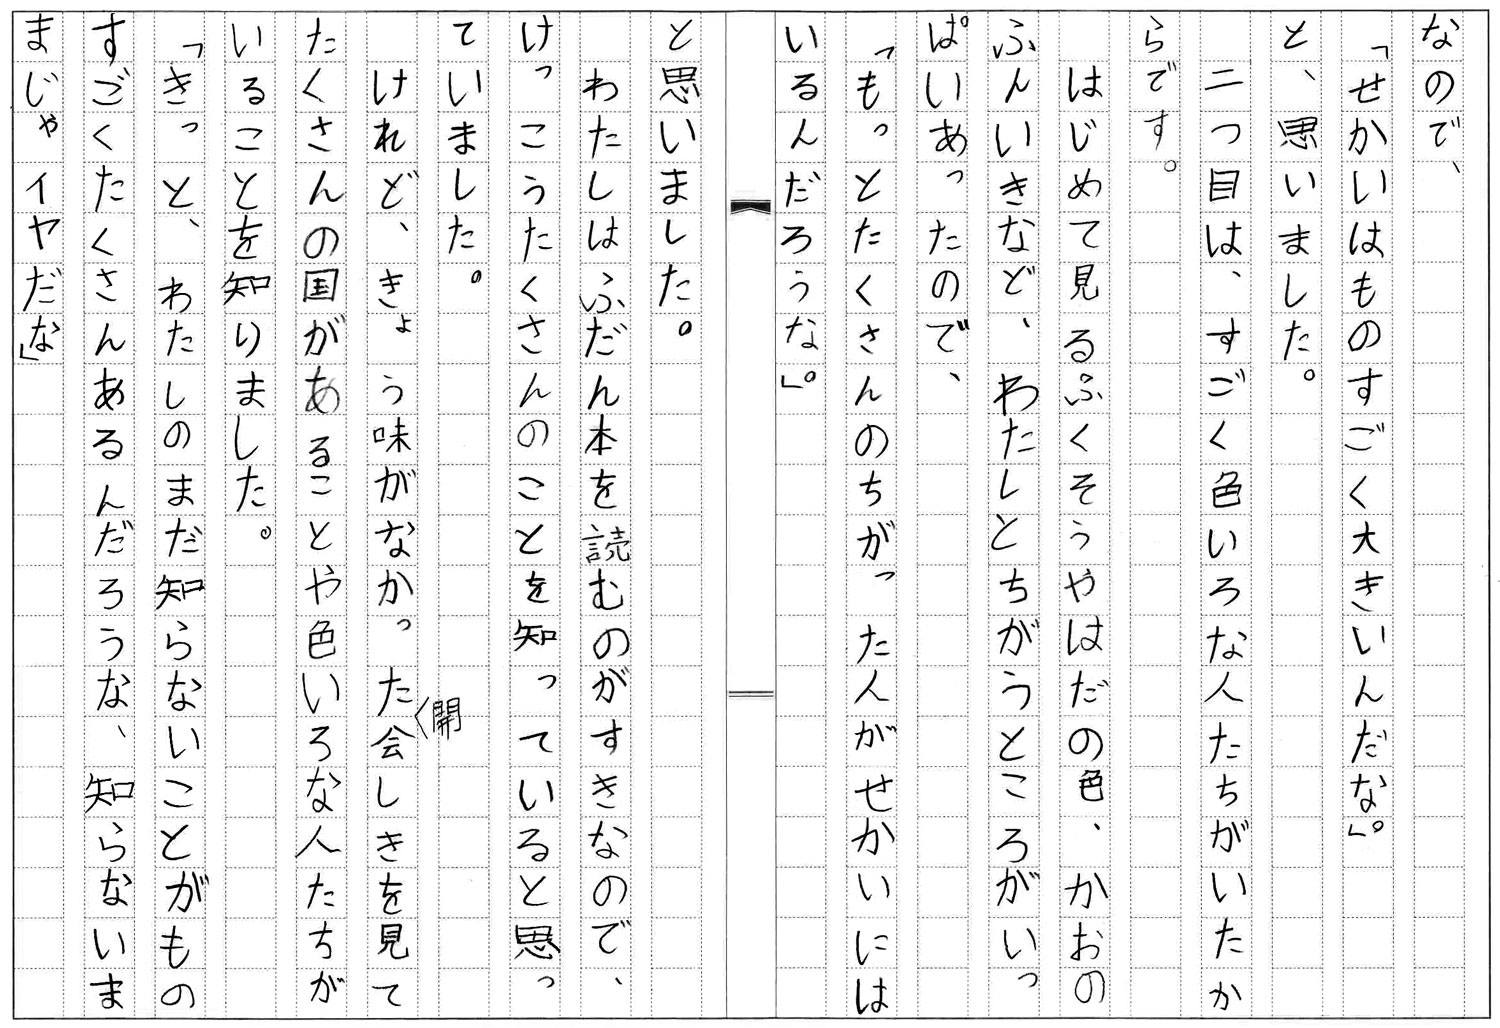 なので、
「せかいはものすごく大きいんだな」。
と、思いました。
二つ目は、すごく色いろな人たちがいたか
らです。
はじめて見るふくそうやはだの色、かおの
ふんいきなど、わたしとちがうところがいっ
ぱいあったので、
「もっとたくさんのちがった人がせかいには
いるんだろうな」。
と思いました。
わたしはふだん本を読むのがすきなので、
けっこうたくさんのことを知っていると思っ
ていました。
けれど、きょう味がなかった開会しきを見て
たくさんの国があることや色いろな人たちが
いることを知りました。
「きっと、わたしのまだ知らないことがもの
すごくたくさんあるんだろうな、知らないま
まじゃイヤだな」